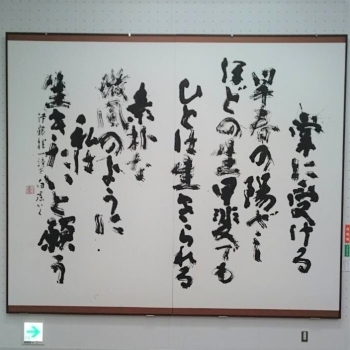 掌に受ける
早春の陽ざし
ほどの生甲斐でも
ひとは生きられる
素朴な
微風のように
私は
生きたいと願う
伊藤桂一詩